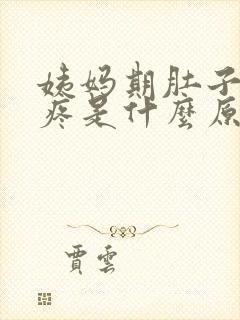 姨妈期肚子
疼是什麼原
賈雲